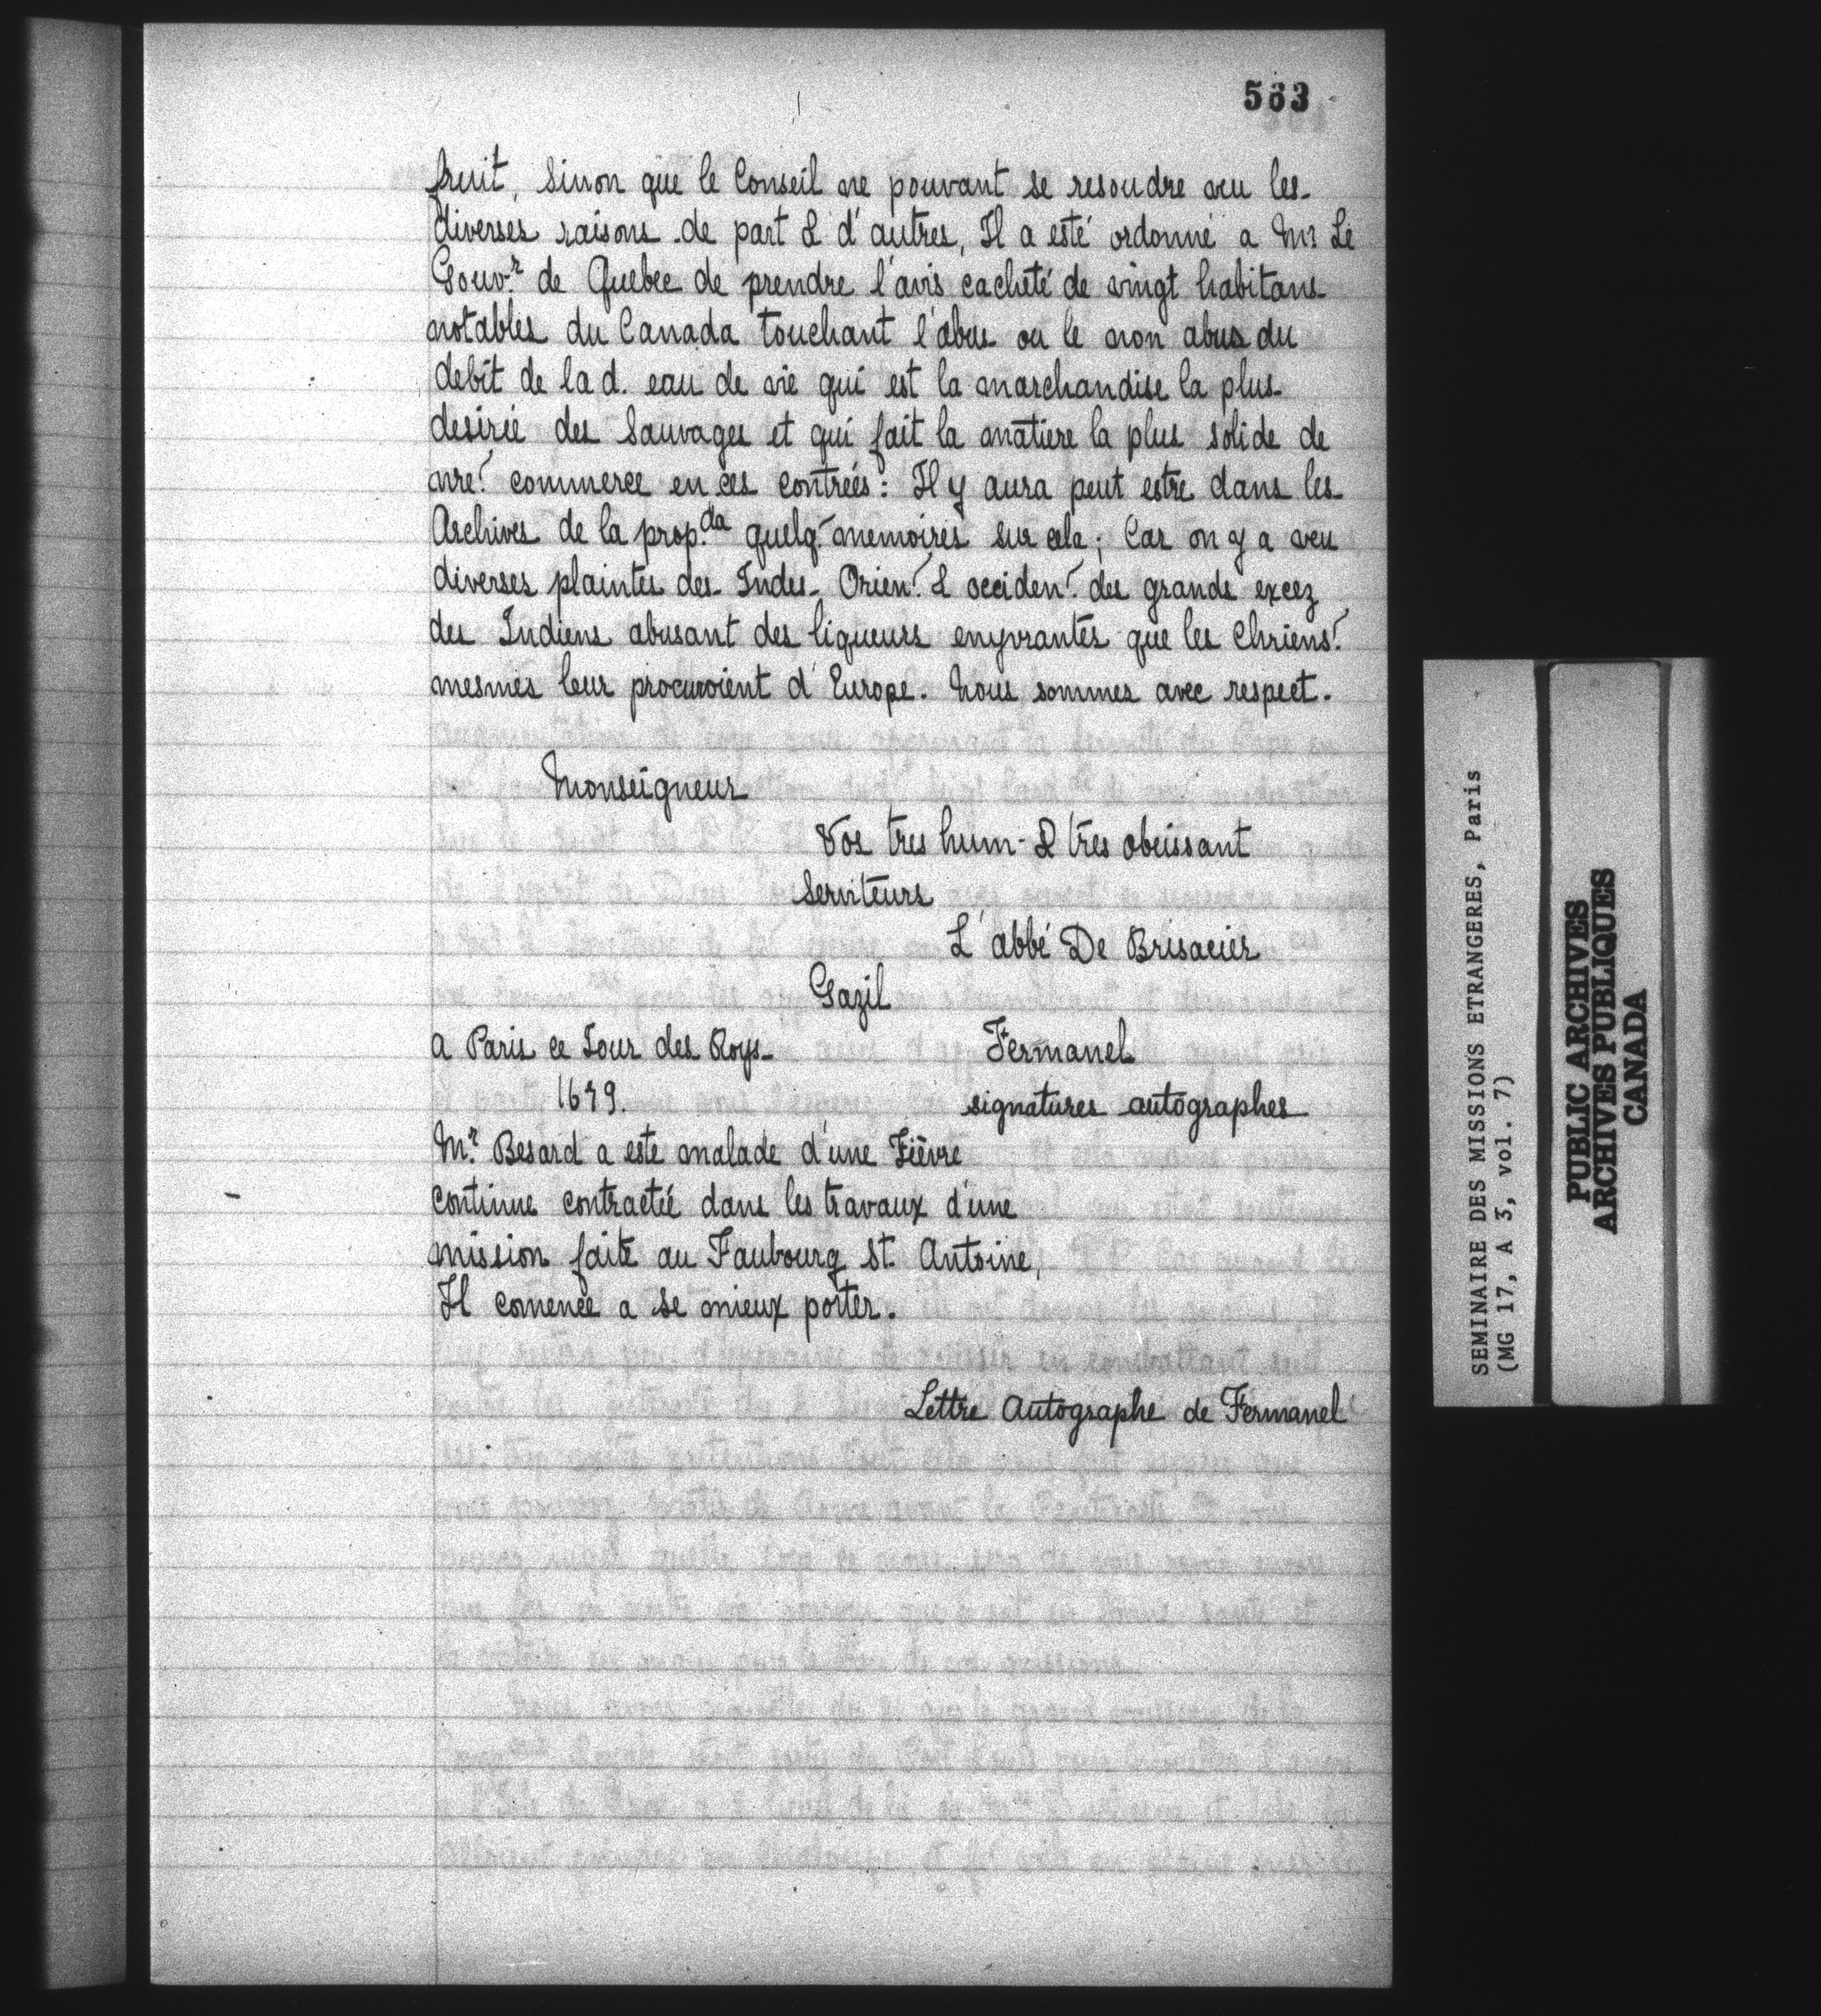 563
fruit, Sinon que le Conseil ne pouvant se resoudre veu les
diverses raisons de part & d'autres, Il a esté ordonné a Mr Le
Gouvr de Quebec de prendre l'avis cacheté de vingt habitans
notables du Canada touchant l'abus ou le non abus du
debit de la d. eau de vie qui est la marchandise la plus
desirée des Sauvages et qui fait la matiere la plus solide de
nre. commerce en ces contreés: Il y aura peut estre dans les
Archives de la prop.da quelq. memoires sur cela; Car on y a veu
diverses plaintes des Indes Orien. & occiden. des grands excez
des Indiens abusant des liqueurs enyvrantes que les Chriens.
mesmes leur procuroient d'Europe. Nous sommes avec respect.
Monseigneur
Vos tres hum- & tres obeissant
Serviteurs
L'abbé De Brisacier
Gazil
a Paris ce Jour des Roys
Fermanel
1679.
signatures autographes
Mr. Besard a esté malade d'une Fièvre
continue contractée dans les travaux d'une
mission faite au Faubourg St. Antoine,
Il comence a se mieux porter.
Lettre Autographe de Fermanel
SEMINAIRE DES MISSIONS ETRANGERES, Paris
(MG 17, A 3, vol. 7)
PUBLIC ARCHIVES
ARCHIVES PUBLIQUES
CANADA